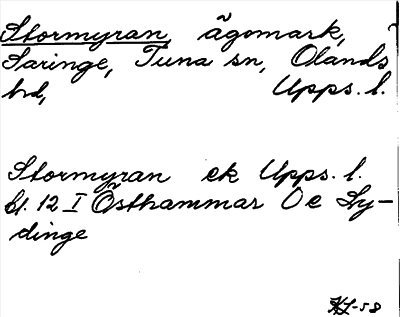 Stormyran, ägomark,
Saringe, Tuna sn, Olands
hd, Upps. l.
Stormyran ek Upps. l.
bl. 12 I Östhammar Oe Ly-
dinge
KL-58